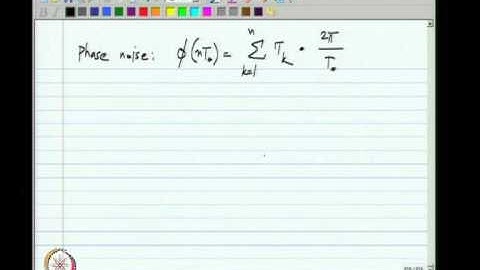 Phase noise: ϕ(nT₀) = ∑_{k=1}^{n} T_k · 2π/T₀